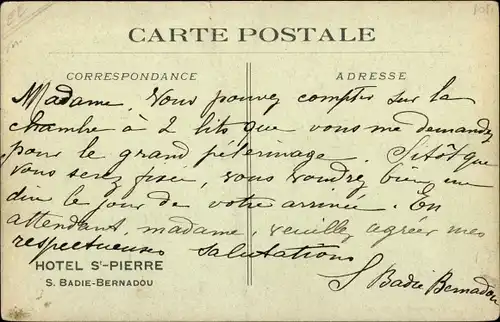 CARTE POSTALE
CORRESPONDANCE
ADRESSE
Madame, Vous pouvez compter sur la
chambre à 2 lits que vous me demandez
pour le grand pélerinage. Sitôt que
vous serez fixée, vous voudrez bien me
dire le jour de votre arrivée. En
attendant, madame, veuillez agréer mes
respectueuses salutations
S Badie Bernadou
HOTEL St-PIERRE
S. BADIE-BERNADOU